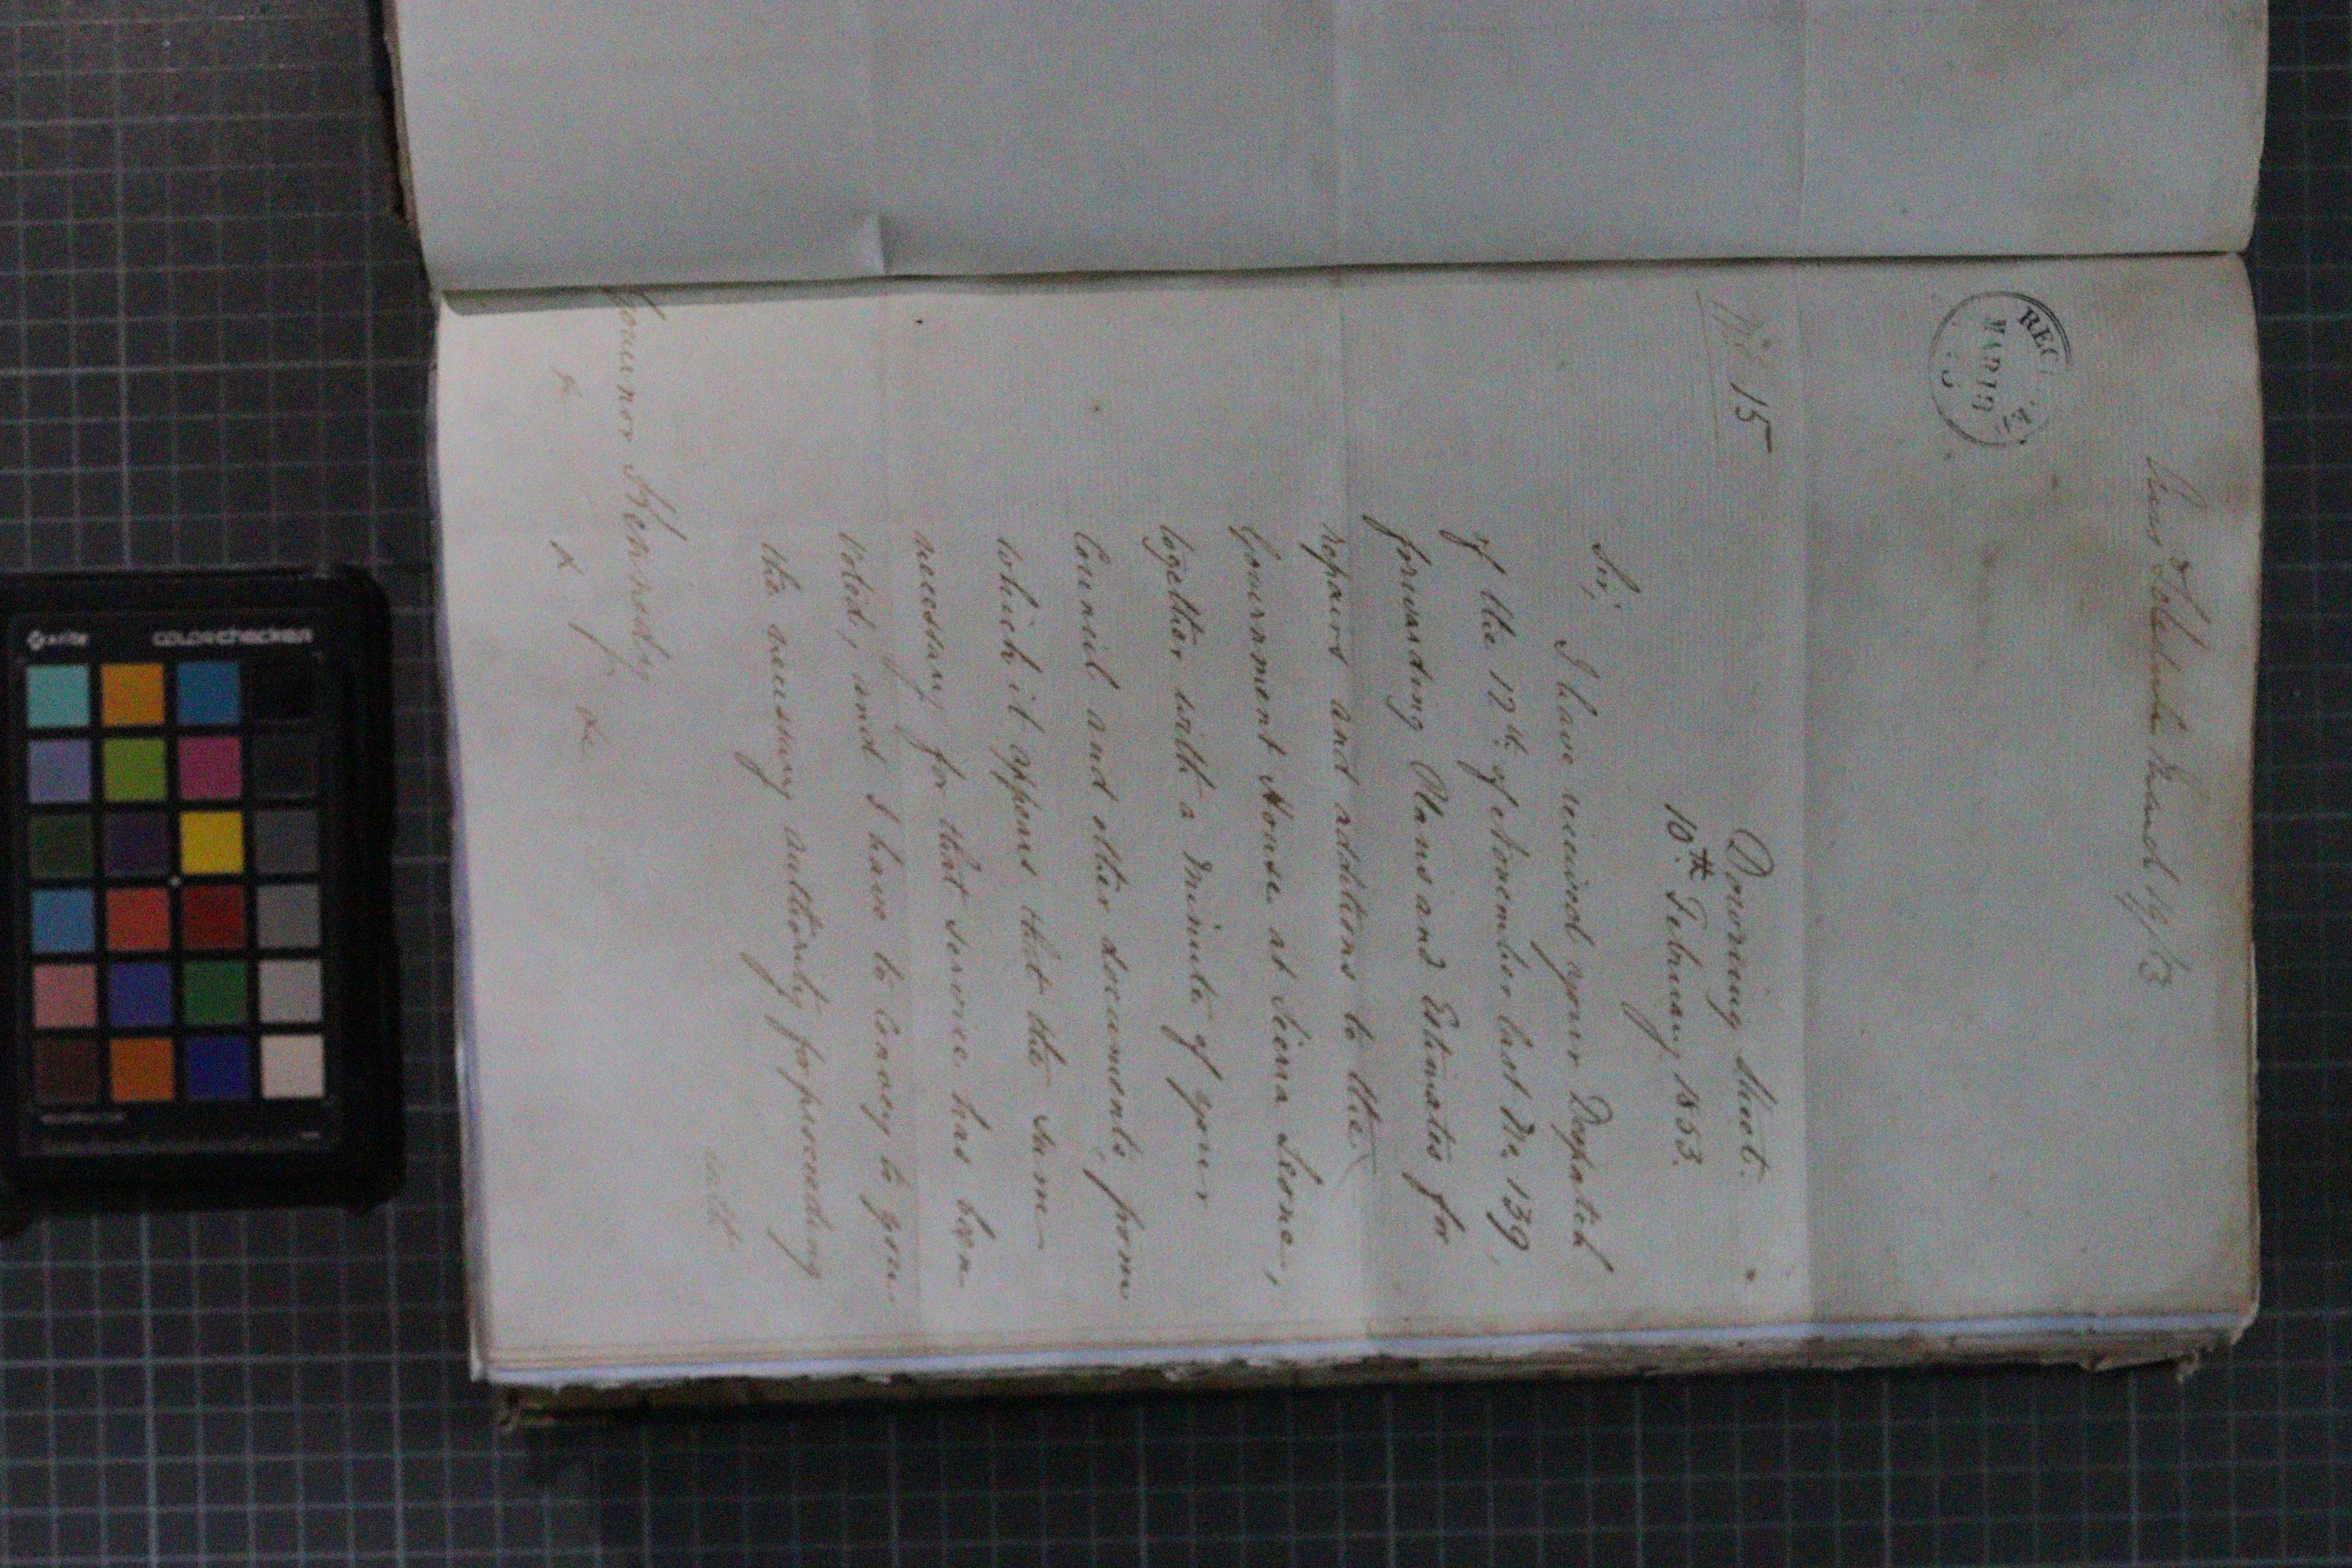 March 19/53
REC
MAR 19
No. 15
Downing Street.
10th February 1853.
Sir,
I have received your Despatch
of the 12th of November last No. 139,
forwarding Plans and Estimates for
repairs and additions to the
Government House at Sierra Leone,
together with a Minute of your
Council and other documents, from
which it appears that the sum
necessary for that service has been
voted, and I have to convey to you
the necessary authority for proceeding
with
Governor Kennedy
&c &c &c
colorchecker